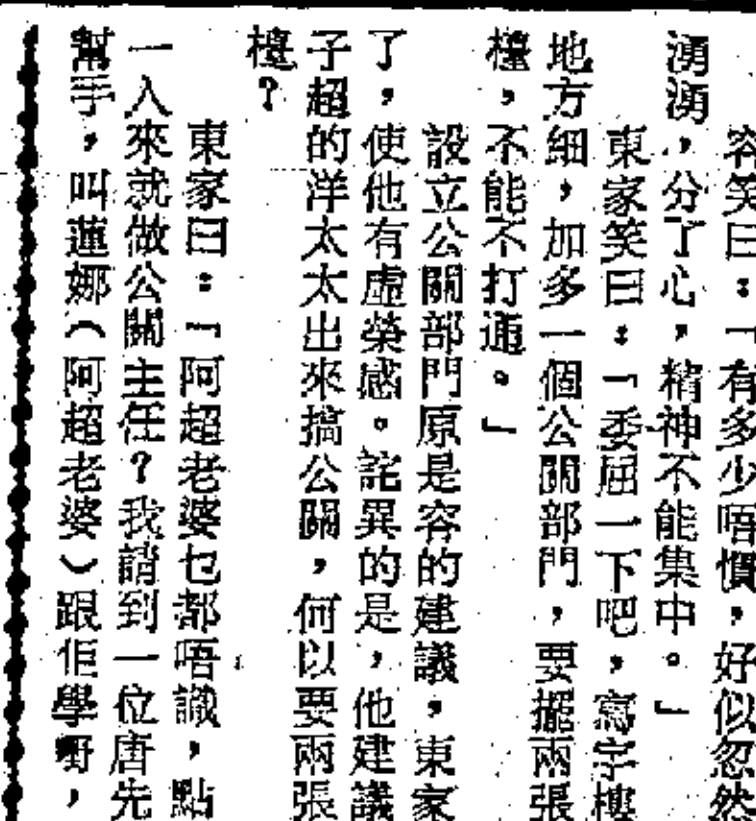 容笑曰：「有多少唔慣，好似忽然
湧湧，分了心，精神不能集中。」
東家笑曰：「委屈一下吧，寫字樓
地方細，加多一個公關部門，要擺兩張
檯，不能不打通。」
設立公關部門原是容的建議，東家
了，使他有虛榮感。詫異的是，他建議
子超的洋太太出來搞公關，何以要兩張
檯？
東家曰：「阿超老婆乜都唔識，點
一入來就做公關主任？我請到一位唐先
幫手，叫蓮娜（阿超老婆）跟佢學嘢，